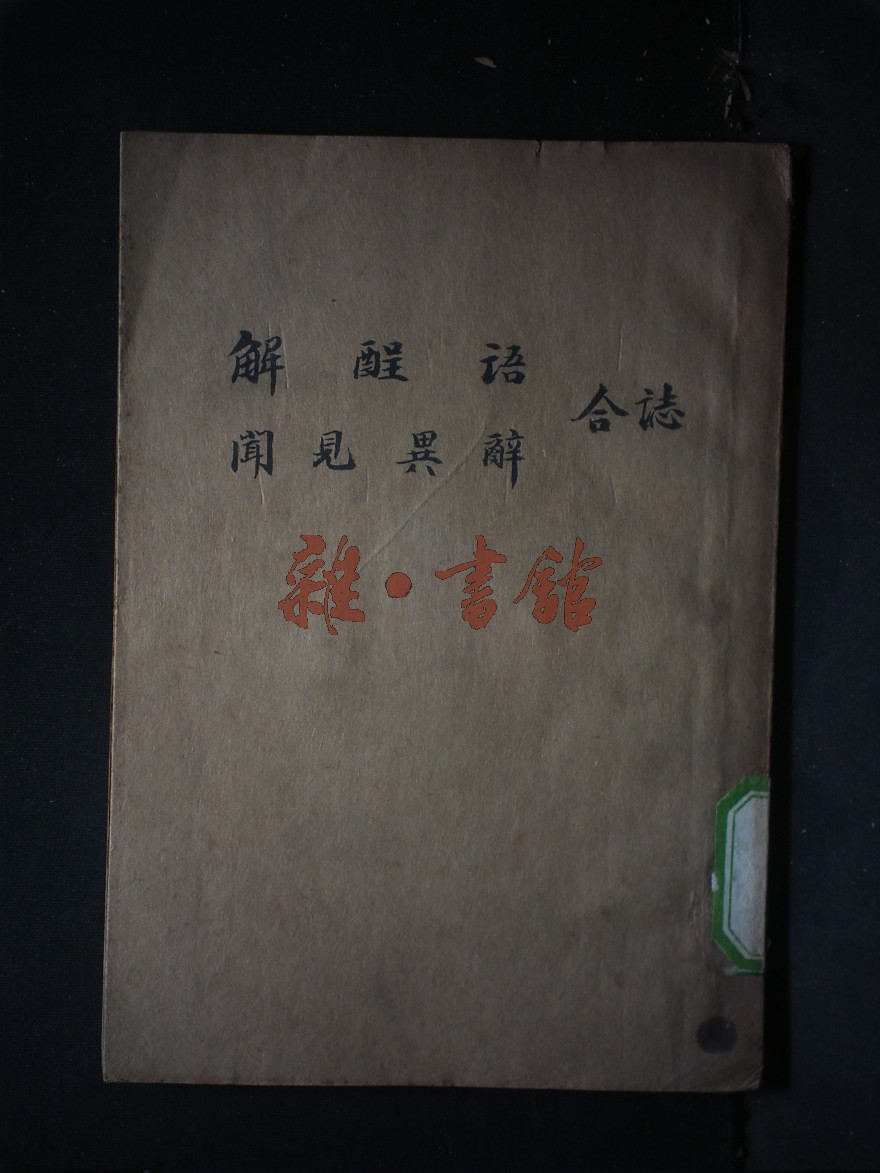 解酲语
聞見異辭
合誌
雜·書館